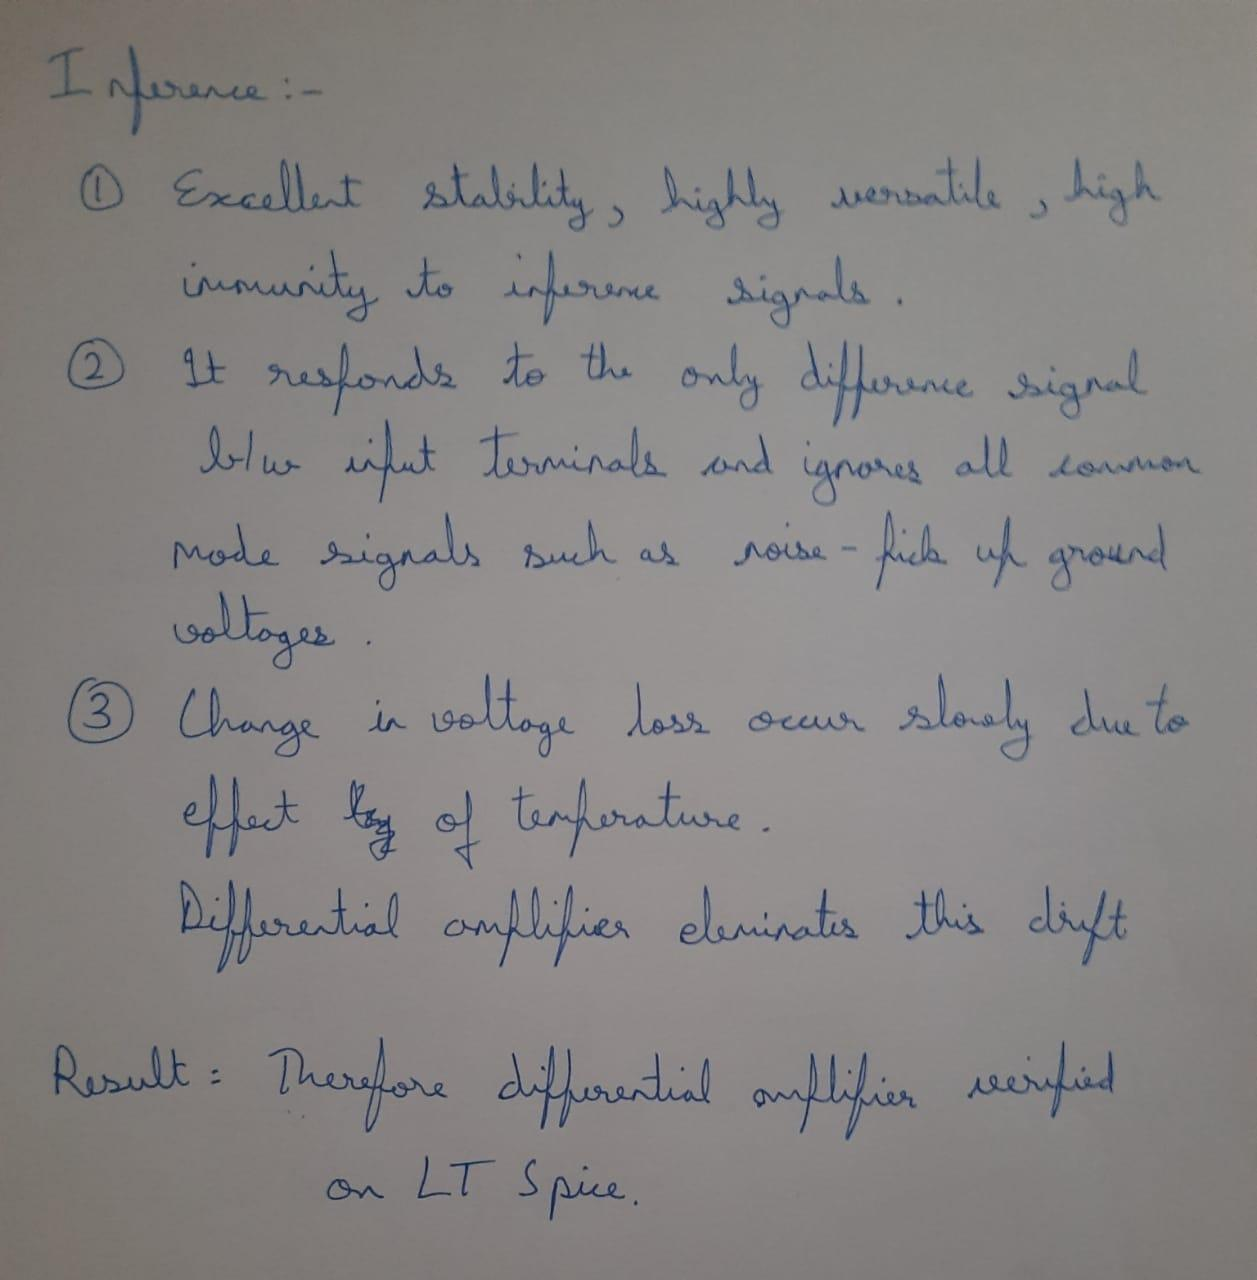 Inference :-
① Excellent stability, highly versatile, high
immunity to inference signals.
② It responds to the only difference signal
b/w input terminals and ignores all common
mode signals such as noise - pick up ground
voltages.
③ Change in voltage loss occur slowly due to
effect of temperature.
Differential amplifier eleminates this drift
Result = Therefore differential amplifier verified
on LT Spice.